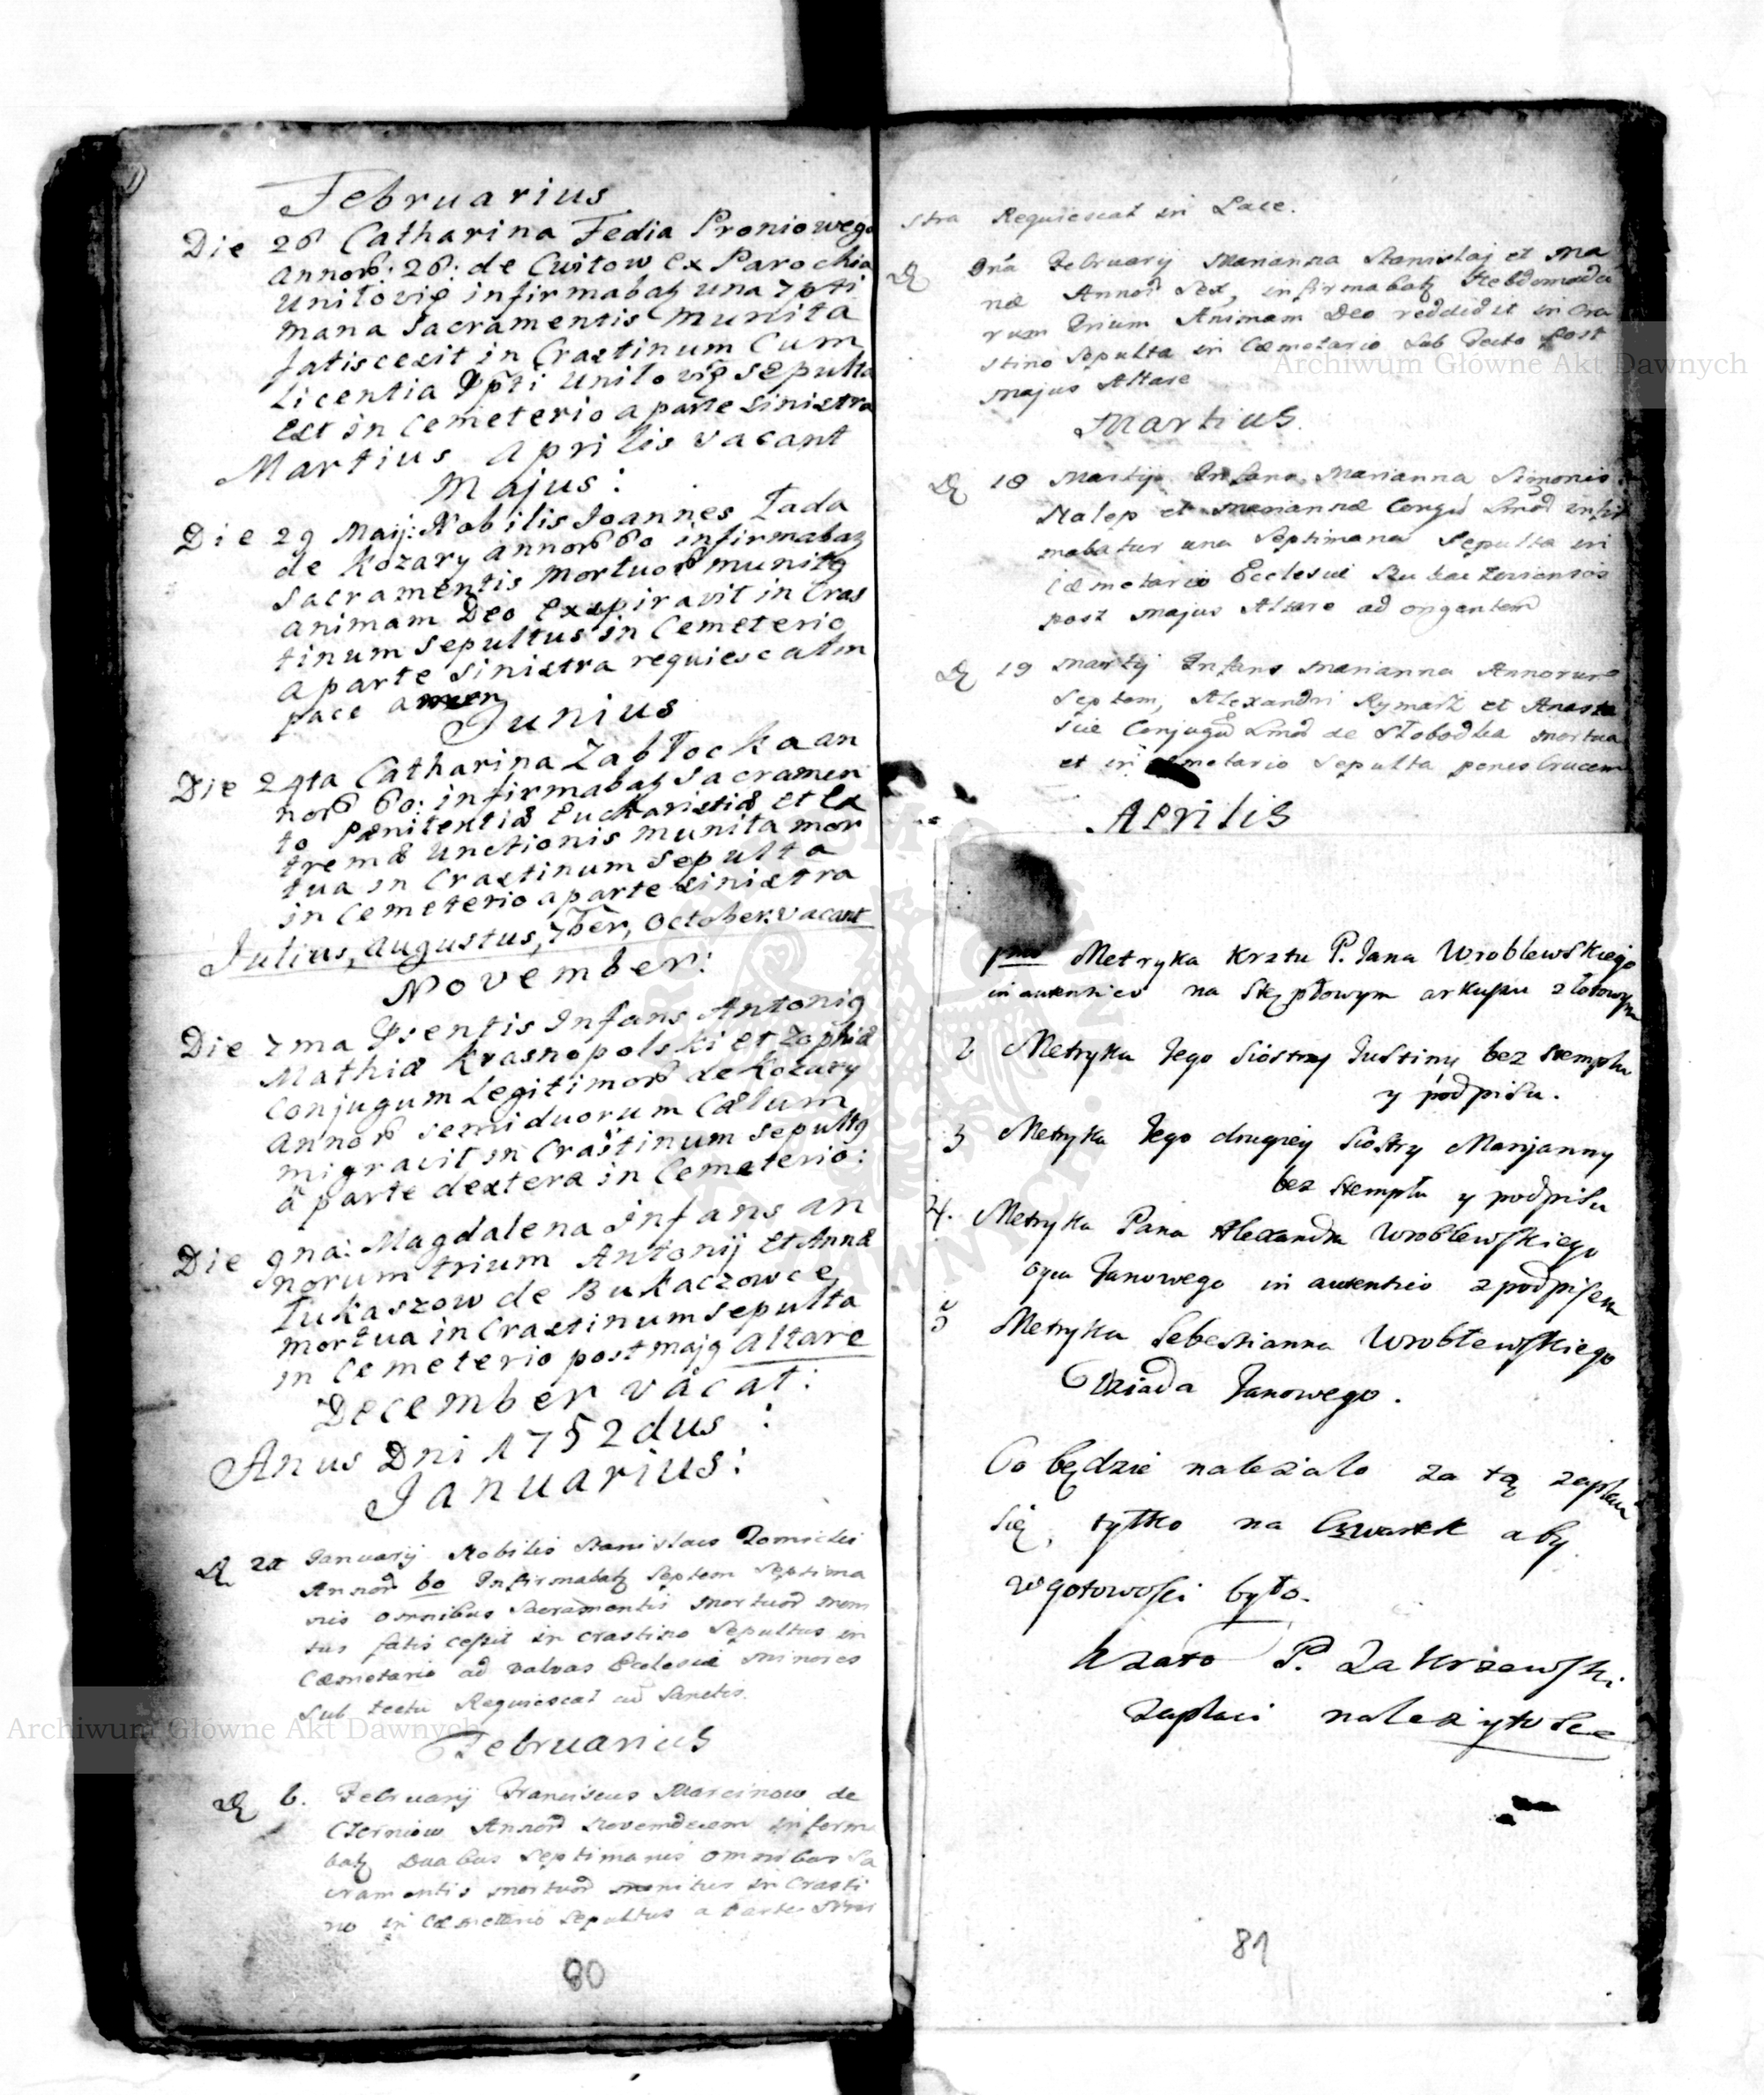 Februarius
Die 26 Catharina Fedia Proniowego
annor: 26: de Cwitow Ex Parochia
Unitovię infirmabat una 7pti
mana Sacramentis munita
fatiscesit in Crastinum Cum
Licentia Ppti Unitovię sepulta
Est in Cemeterio a parte sinistra
Martius Aprilis vacant
Majus:
Die 29 Maij: Nobilis Joannes Łada
de Kozary annor 60 infirmabat
Sacramentis mortuor munitq
animam Deo Exspiravit in Cras
tinum sepultus in Cemeterio
a parte sinistra requiescat in
pace amen
Junius
Die 29ta Catharina Zabłocka an
nor 60: infirmabat Sacramen
to Pænitentiæ Eucharistiæ et Ex
tremæ Unctionis munita mor
tua in Crastinum sepulta
in Cemeterio a parte sinistra
Julius, Augustus, 7ber, October vacant
November:
Die 7ma Psentis Infans Antoniq
Mathiæ Krasnopolski et Zophiæ
Conjugum Legitimor de Kozary
annor semiduorum Cælum
migravit in Crastinum sepultq
a parte dextera in Cemeterio:
Die 9na: Magdalena Infans an
norum trium Antonij et Annæ
Łukaszow de Bukaczowce
mortua in Crastinum sepulta
in Cemeterio post majq altare
December vacat:
Anus Dni 1752dus:
Januarius:
Januarij Nobilis Stanislaus Zomicki
Annor 60 Infirmabat Septem Septima
nis omnibus Sacramentis mortuor mem
tus fatis cessit in crastino Sepultus in
Cæmetario ad valvas Ecclesiæ minores
Sub tectu Requiescat cu Sanctis.
Februarius
D 6. Februarij Franciscus Marcinow de
Czerniow Annor Novemdecem infirm
bat Duabus Septimanis omnibus Sa
cramentis mortuor munitus in Crasti
no in Cæmeterio Sepultus a Parte Sini
80
stra Requiescat in Pace.
D Februarij Marianna Stanislaj et Ma
næ Annor Sex, infirmabat Hebdomada
rum trium Animam Deo reddidit in Cra
stino Sepulta in Cæmetario Sub Tecto post
majus Altare
Martius.
D 18 Martij Infans Marianna Simonis
Nalep et Mariannæ infir
mabatur una Septimana Sepulta in
Cæmetario Ecclesiæ Bukaczoviensis
post majus Altare ad
D 19 Martij Infans Marianna Annorum
Septem, Alexandri Rymarz et Anasta
siæ Conjugu de Słobodka mortua
et in Cæmetario Sepulta penes Crucem
Aprilis
pmo Metryka Krztu P. Jana Wroblewskiego
in autentico na Stęplowym arkuszu złotowym
2 Metryka Jego Siostry Justiny bez stempla
y podpisu.
3 Metryka Jego drugiey Siostry Maryanny
bez stempla y podpisu
4. Metryka Pana Alexandra Wroblewskiego
Oyca Janowego in autentico z podpisem
5 Metryka Sebestianna Wroblewskiego
Dziada Janowego.
Co będzie należało za tą zapłaci
się, tylko na Czwartek aby
w gotowości było.
P. Zakrzewski
zapłaci należytość
81
Archiwum Główne Akt Dawnych
Archiwum Główne Akt Dawnych